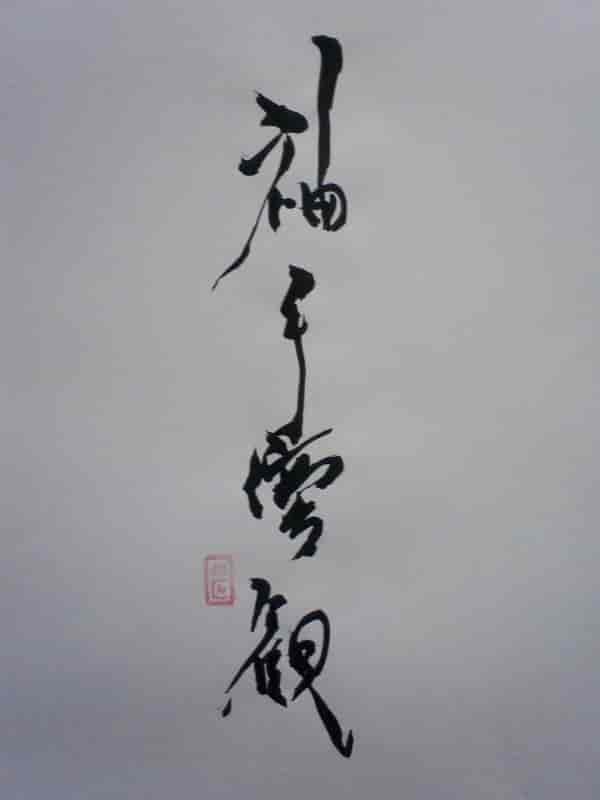 袖手傍観